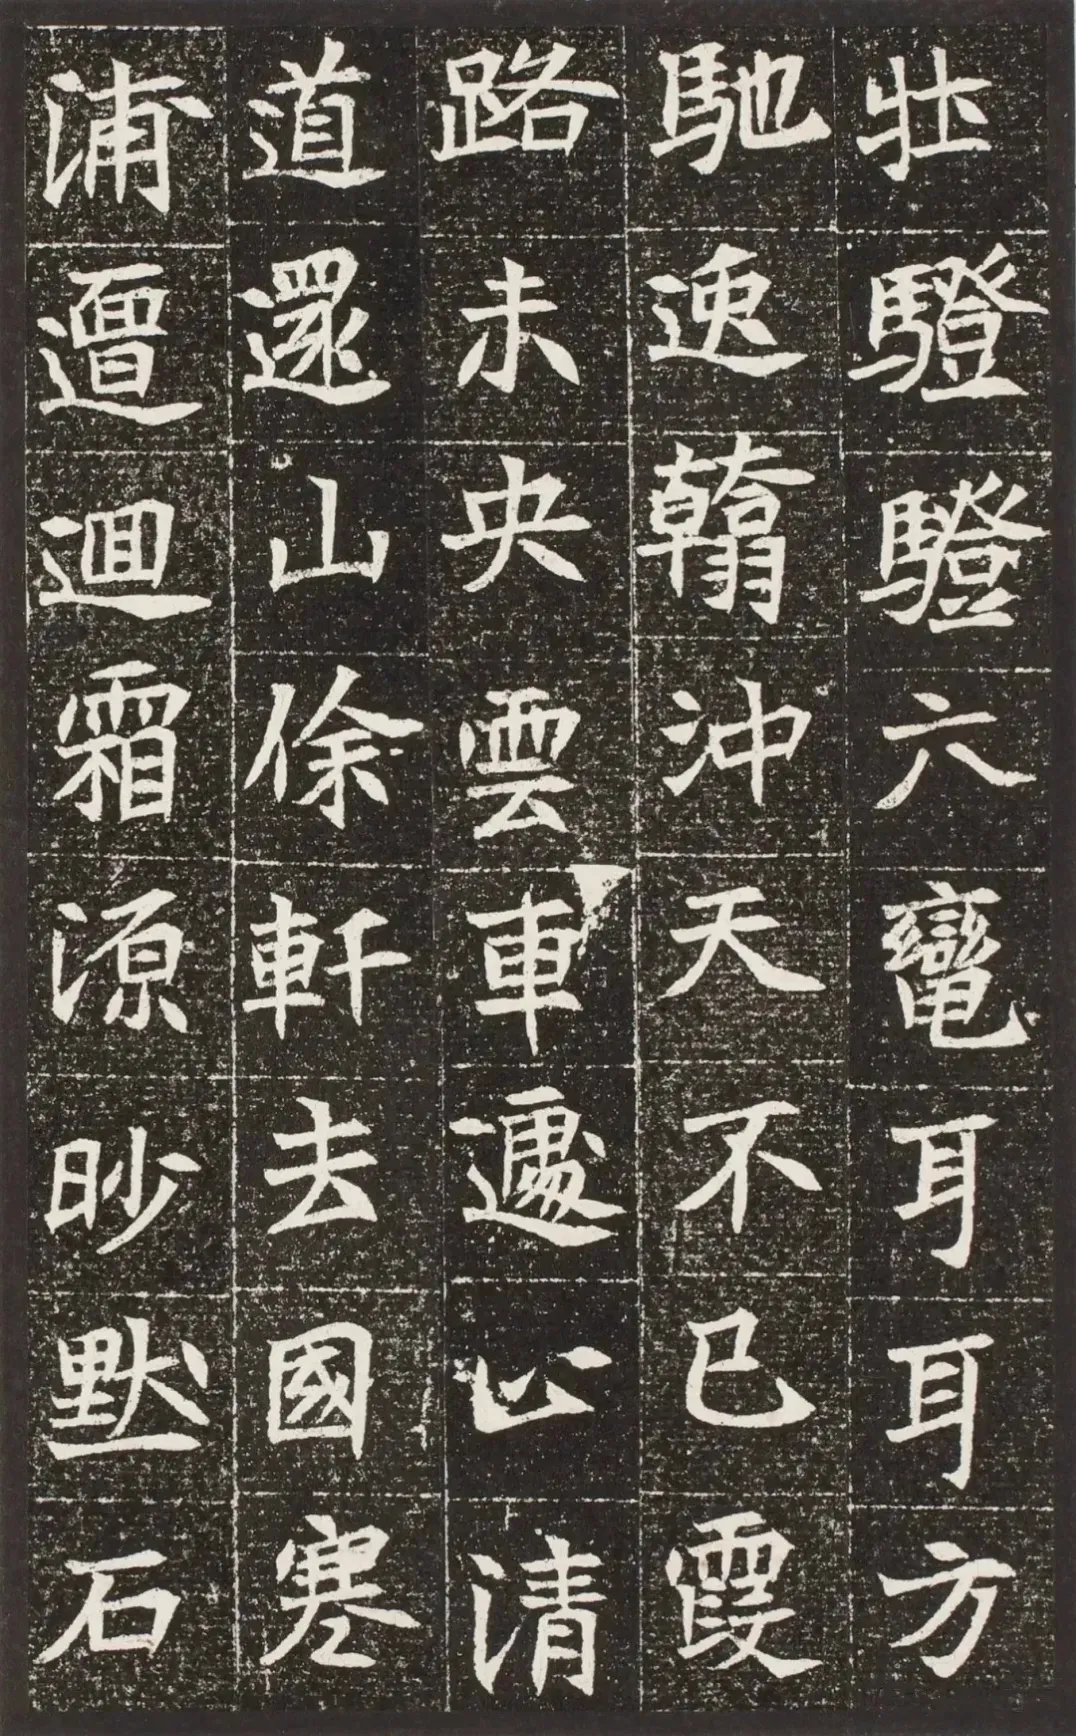 牡騤騤六轡耳耳方
馳速翰沖天不已霞
路未央雲車遽止清
道還山徐軒去國寒
浦邅迴霜源眇默石